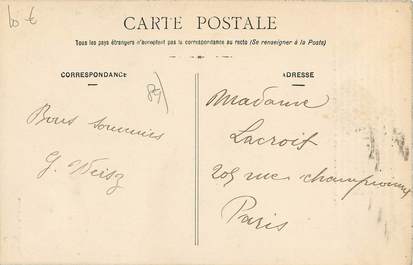 10 €
CARTE POSTALE
Tous les pays étrangers n'acceptent pas la correspondance au recto (Se renseigner à la Poste)
CORRESPONDANCE
ADRESSE
Bons
G. Weisz
Madame
Lacroix
205 rue championnet
Paris